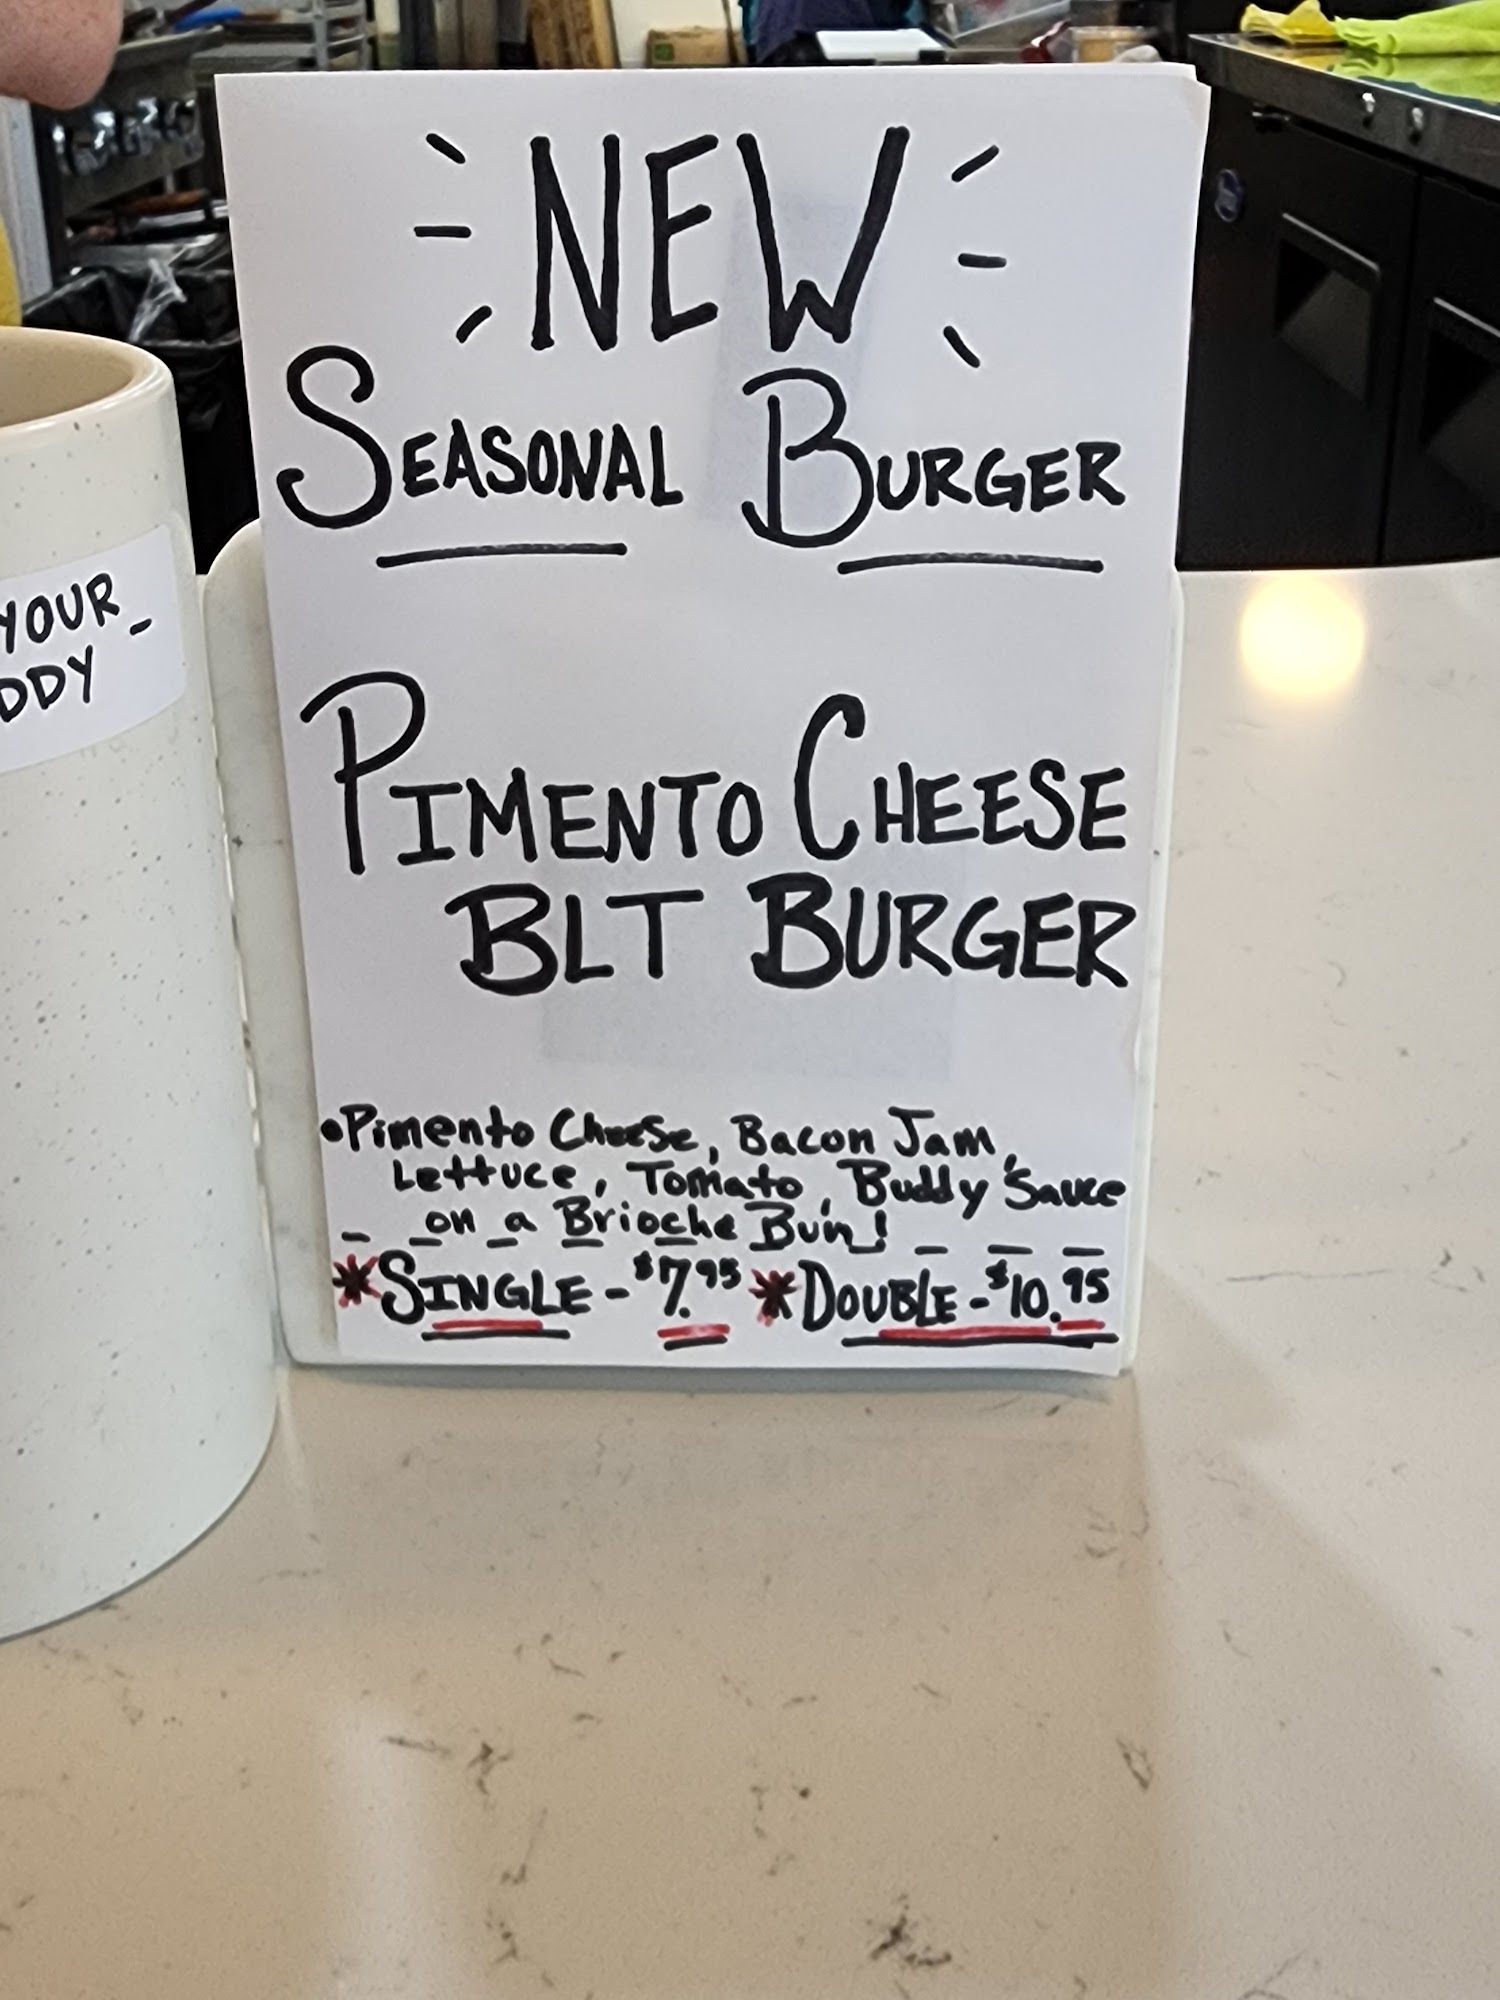 NEW
SEASONAL BURGER
PIMENTO CHEESE
BLT BURGER
•Pimento Cheese, Bacon Jam,
Lettuce, Tomato, Buddy Sauce
on a Brioche Bun!
*SINGLE - $7.95 *DOUBLE - $10.95
YOUR
DDY